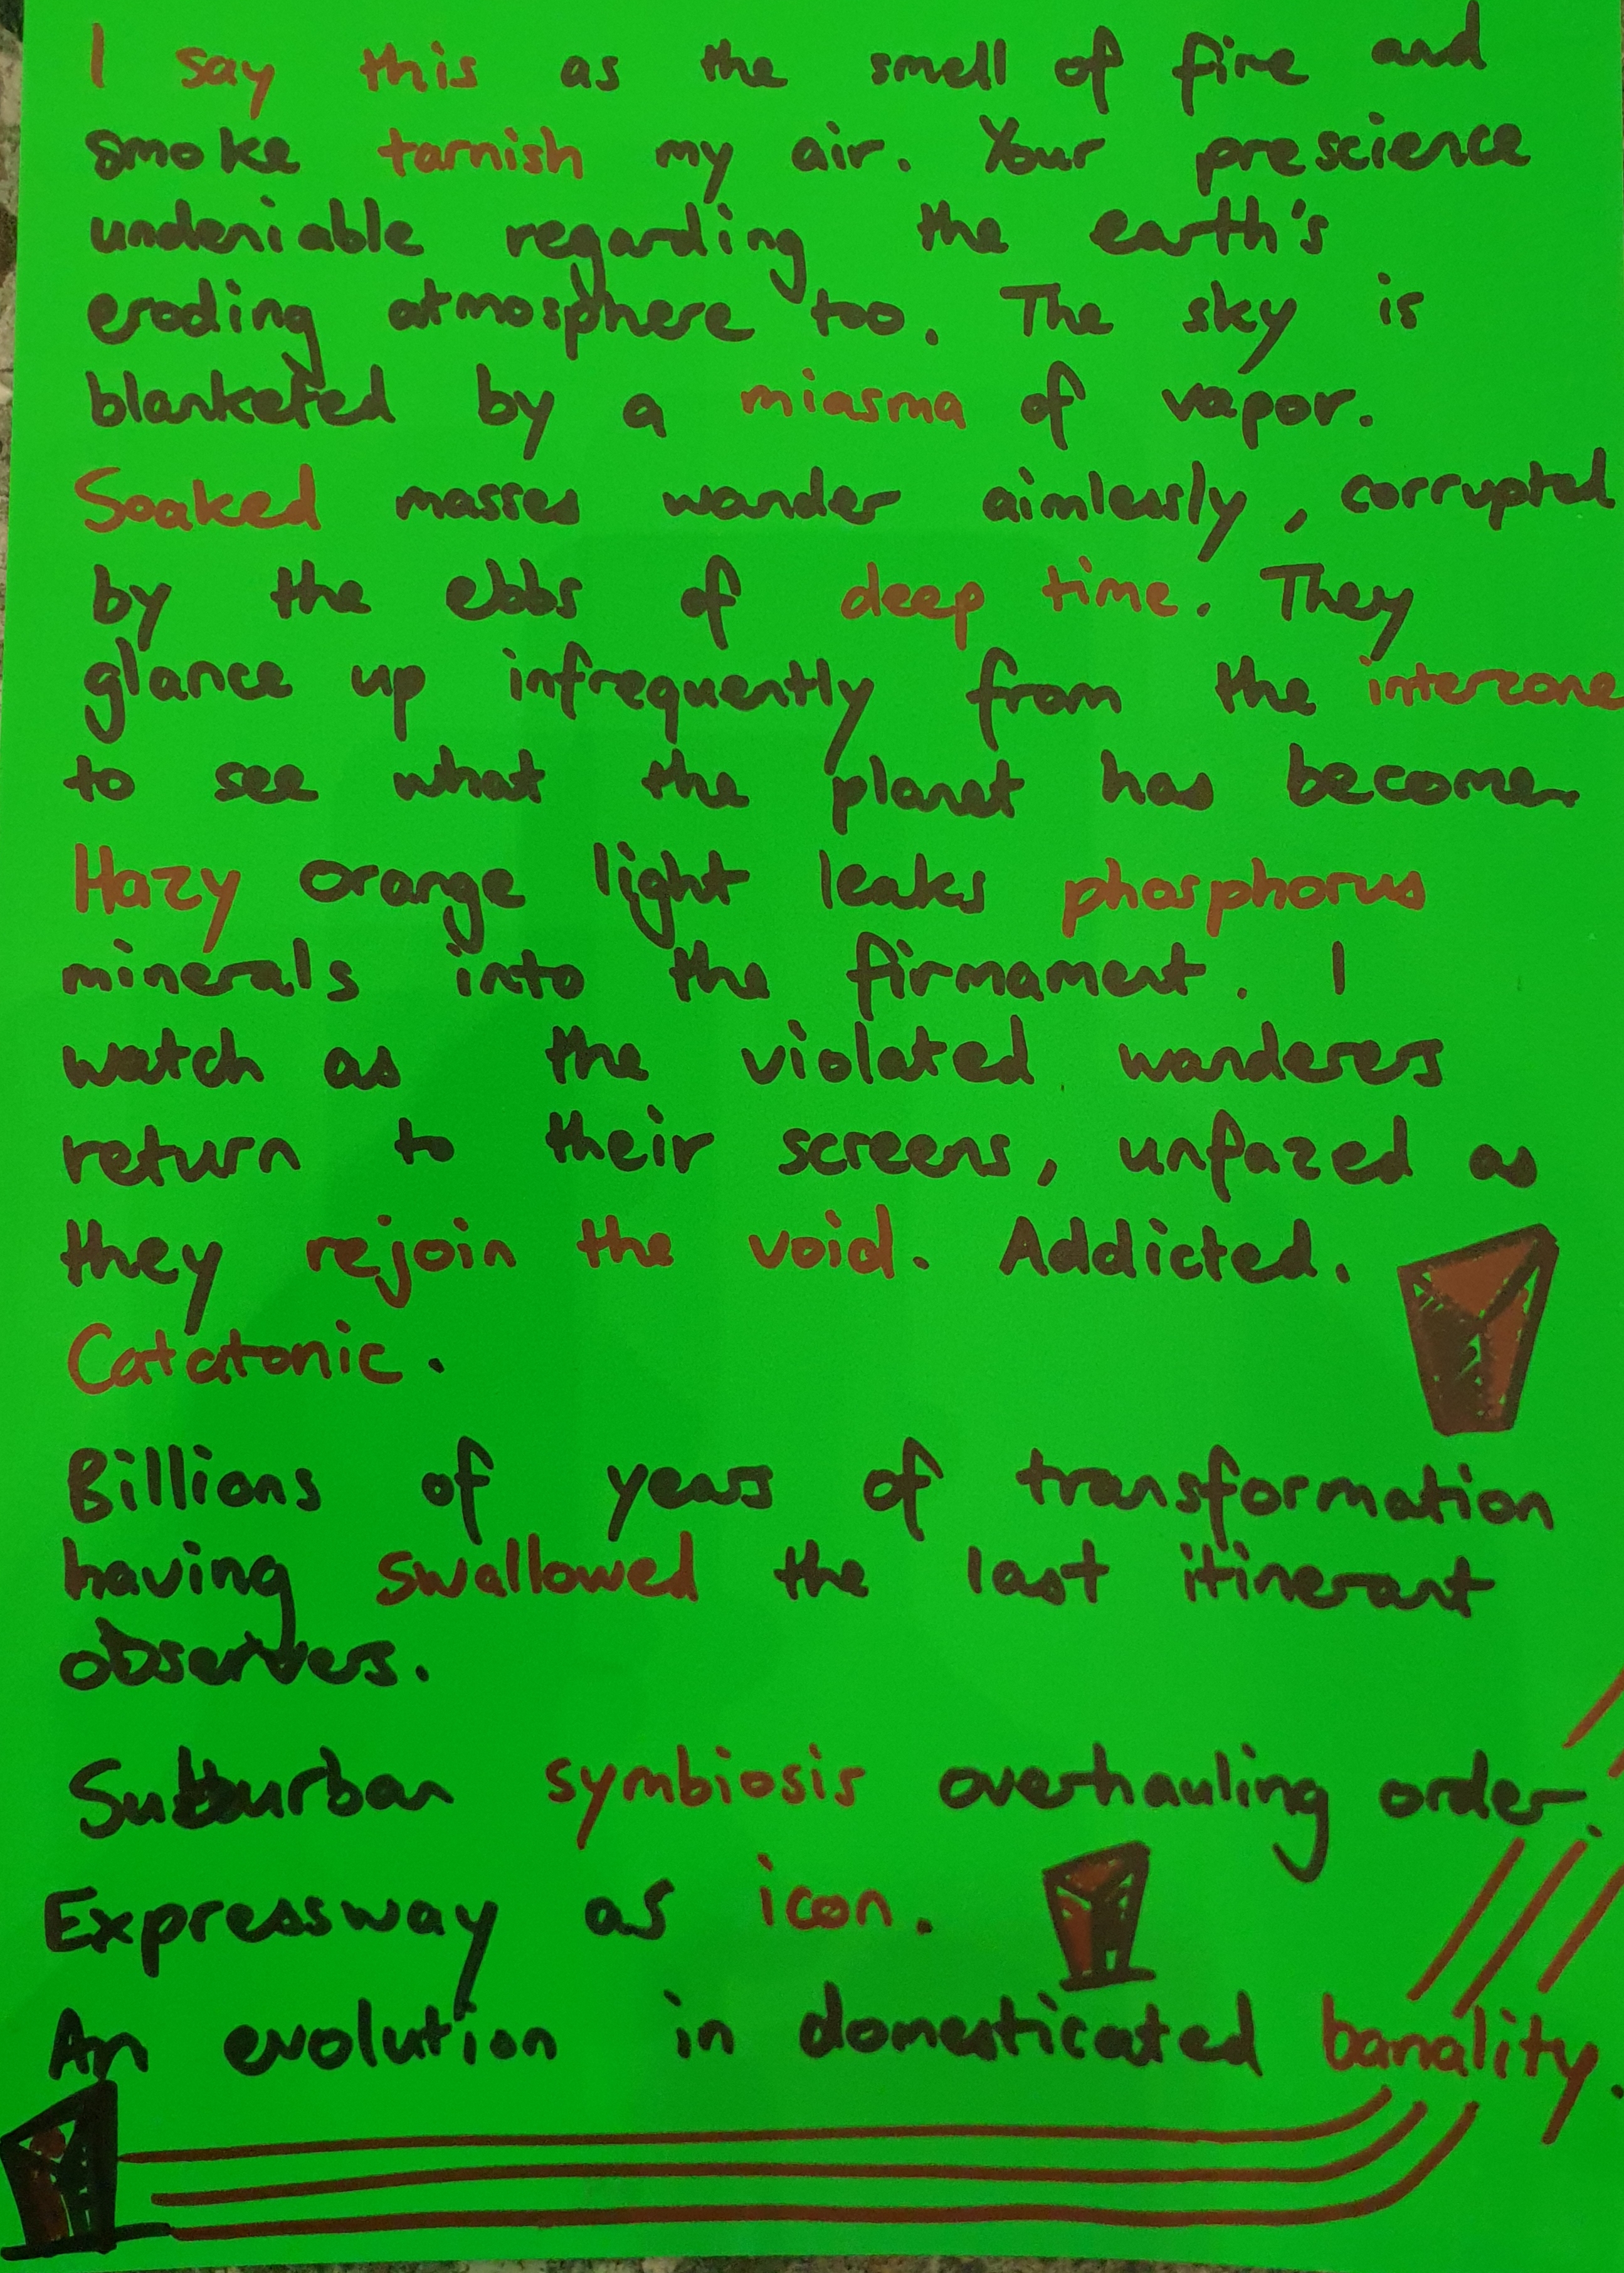 I say this as the smell of fire and
smoke tarnish my air. Your prescience
undeniable regarding the earth's
eroding atmosphere too. The sky is
blanketed by a miasma of vapor.
Soaked masses wander aimlessly, corrupted
by the ebbs of deep time. They
glance up infrequently from the interzone
to see what the planet has become.
Hazy orange light leaks phosphorus
minerals into the firmament. I
watch as the violated wanderers
return to their screens, unfazed as
they rejoin the void. Addicted.
Catatonic.
Billions of years of transformation
having swallowed the last itinerant
observers.
Suburban symbiosis overhauling order.
Expressway as icon.
An evolution in domesticated banality.